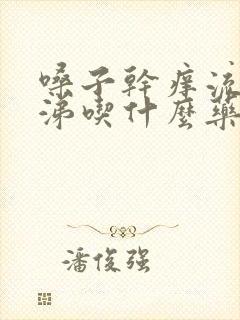 嗓子幹痒流
涕喫什麼藥
潘俊强